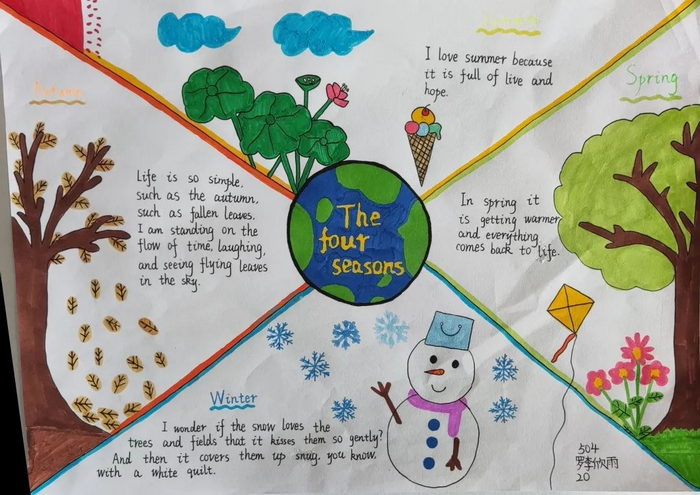 Summer
I love summer because
it is full of live and
hope.
Autumn
Spring
Life is so simple,
such as the autumn,
such as fallen leaves.
I am standing on the
flow of time, laughing,
and seeing flying leaves
in the sky.
The
four
seasons
In spring it
is getting warmer
and everything
comes back to life.
Winter
I wonder if the snow loves the
trees and fields that it kisses them so gently?
And then it covers them up snug, you know,
with a white quilt.
504
罗李欣雨
20